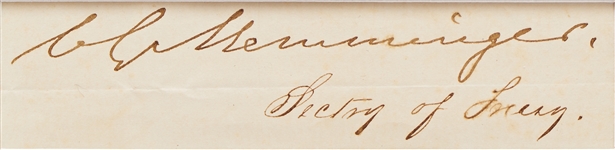 C G Memminger.
Sectry of Treasy.